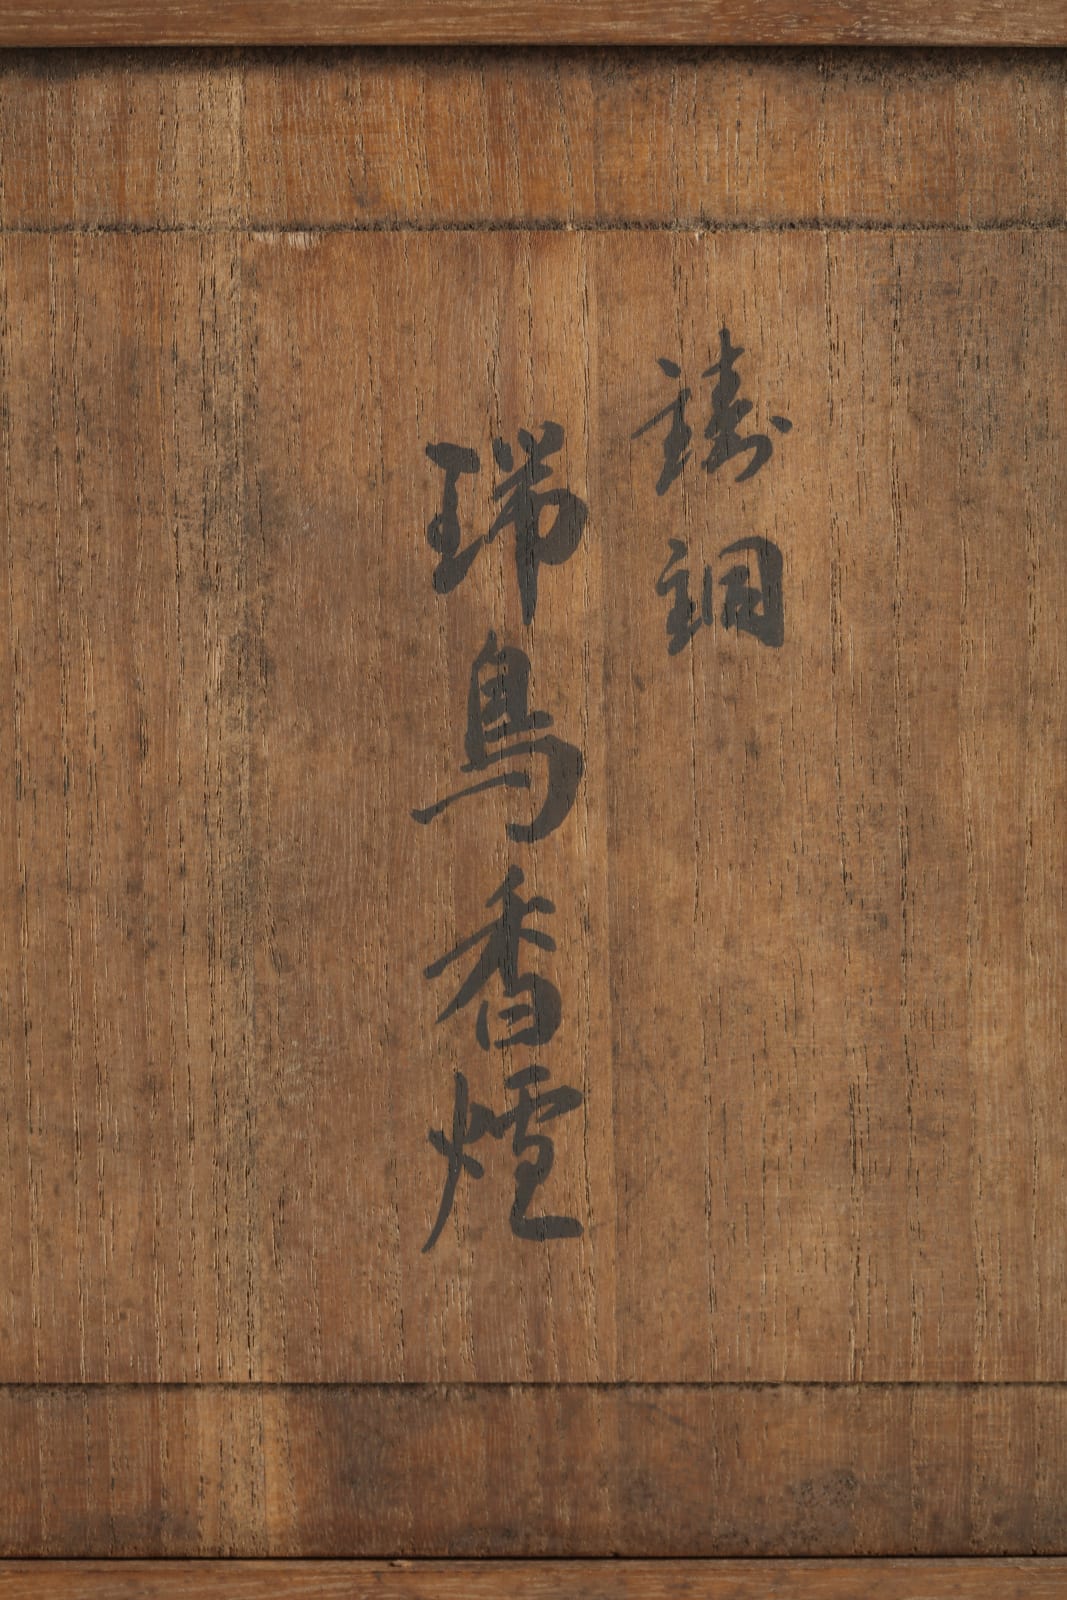 鋳銅
瑞鳥香炉